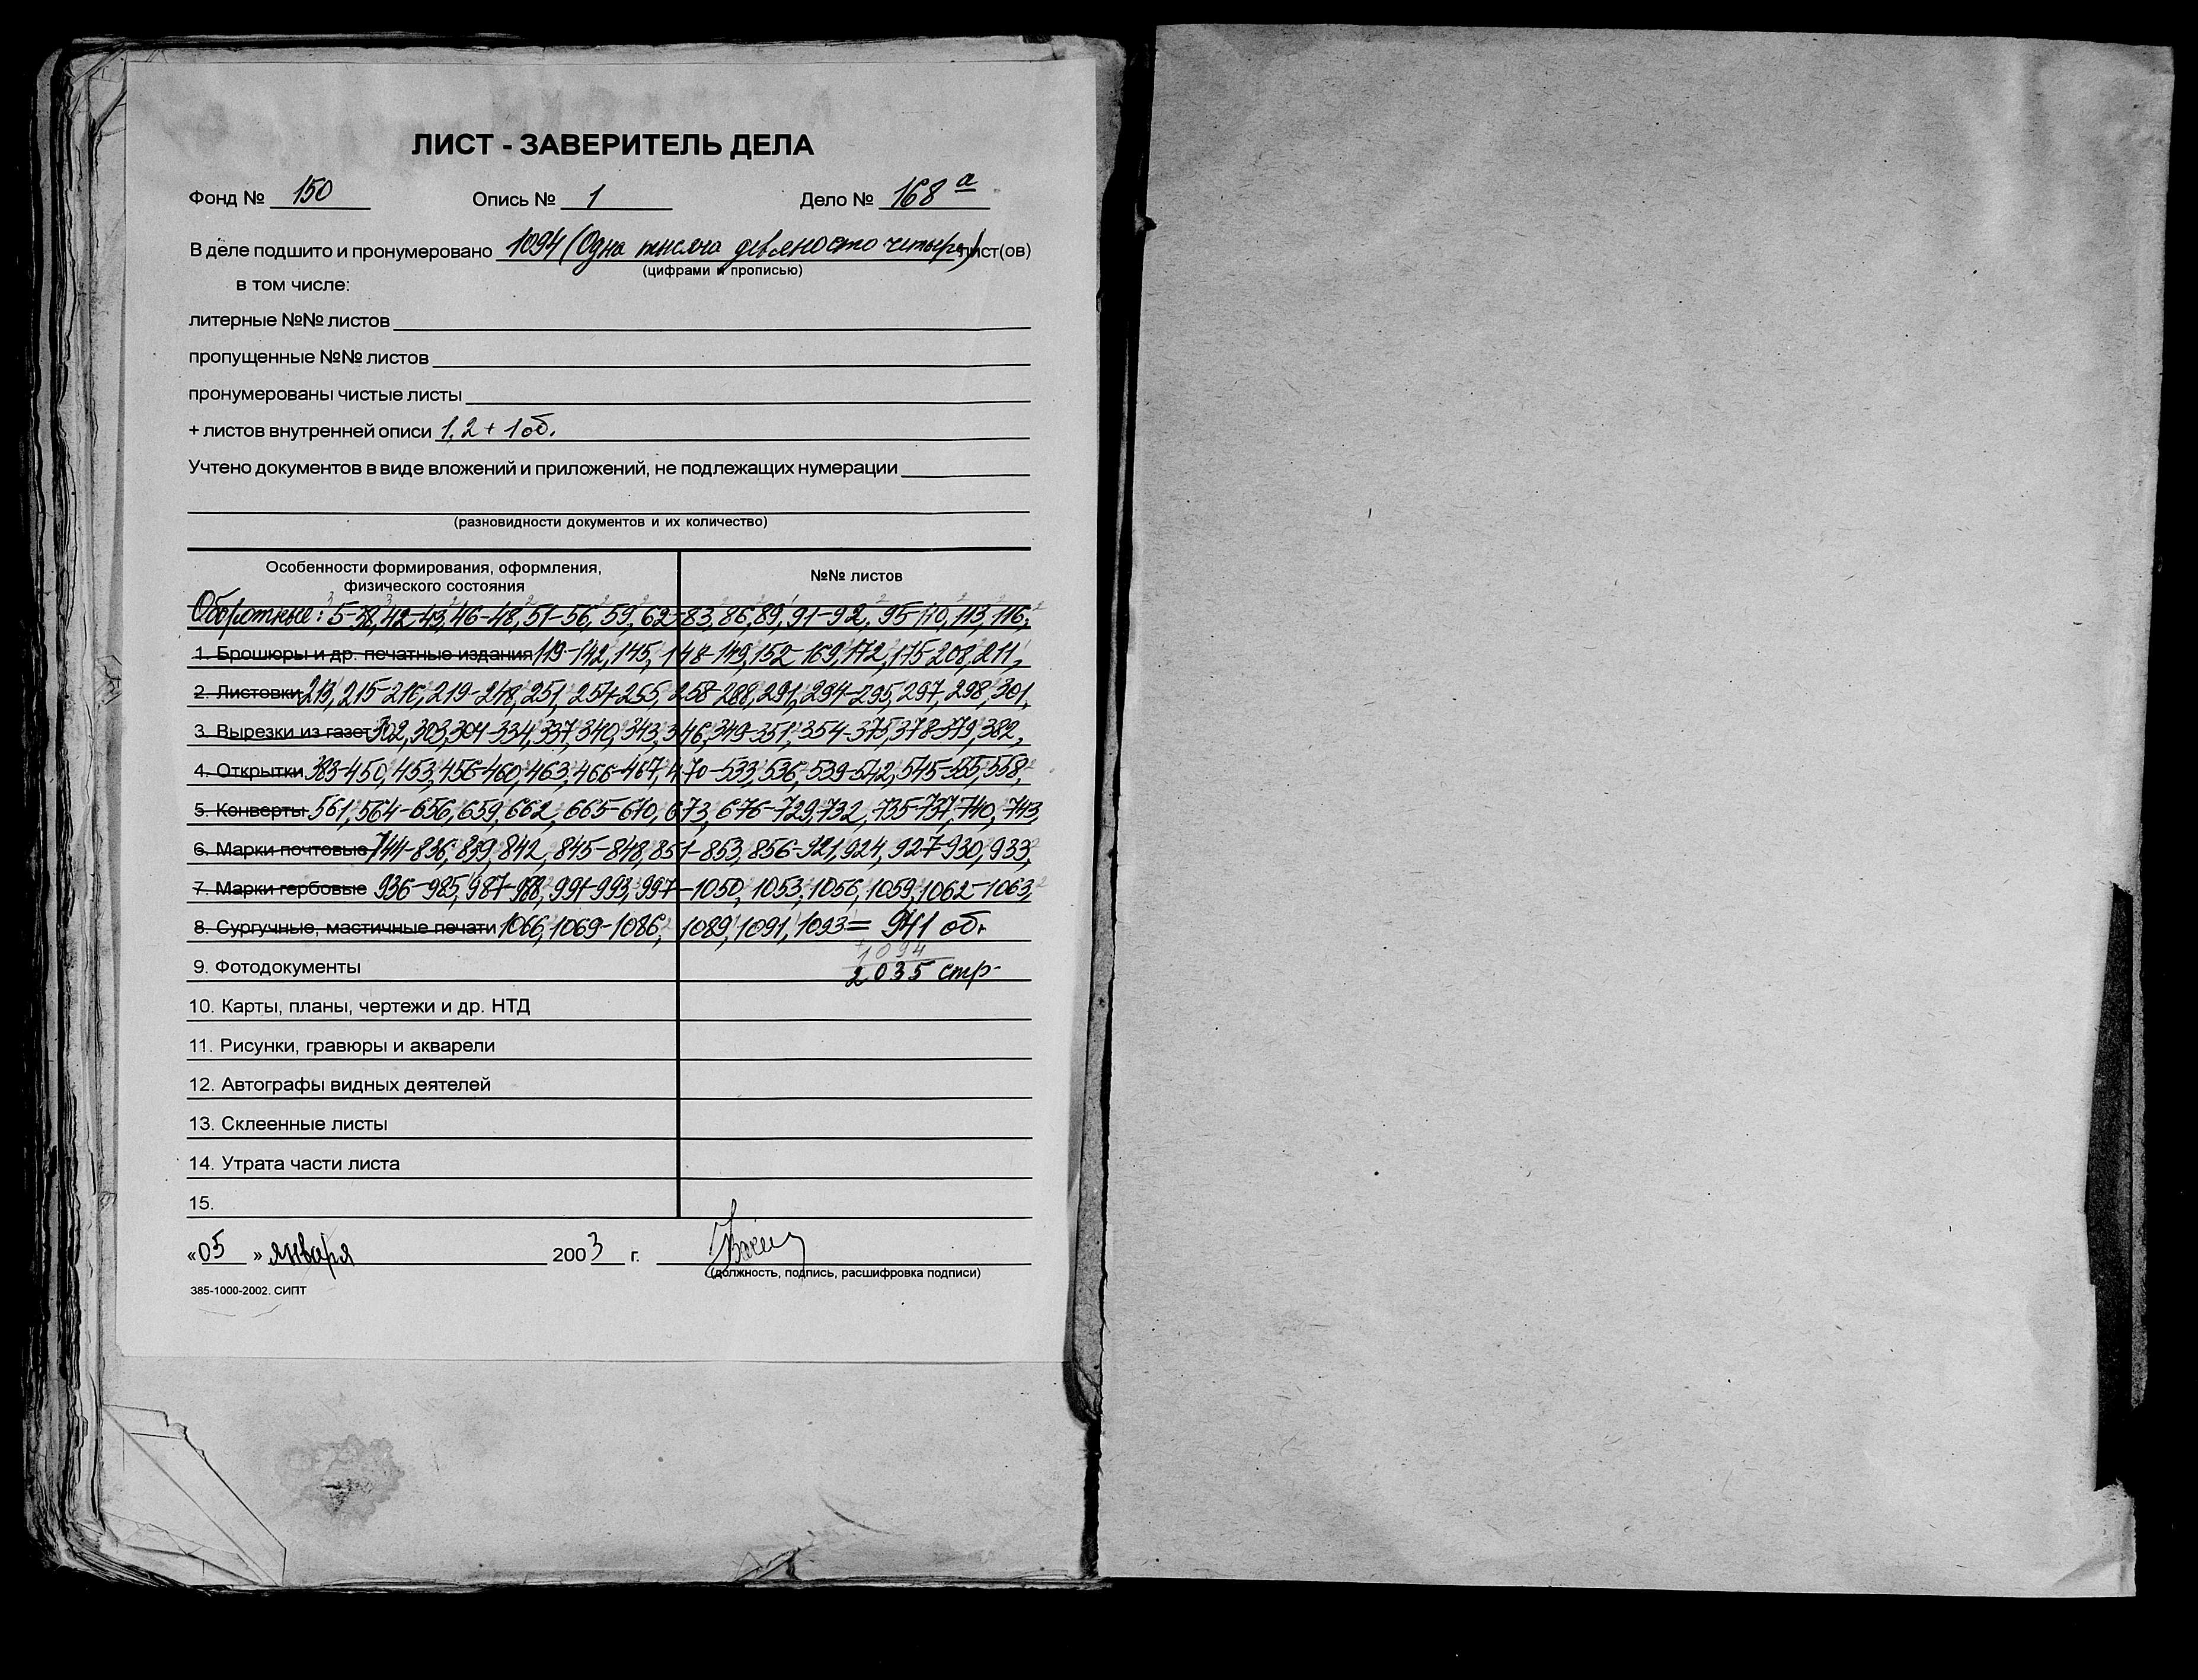 ЛИСТ - ЗАВЕРИТЕЛЬ ДЕЛА
Фонд № 150 Опись № 1 Дело № 168 а
В деле подшито и пронумеровано 1094 (Одна тысяча девяносто четыре) лист(ов)
(цифрами и прописью)
в том числе:
литерные №№ листов
пропущенные №№ листов
пронумерованы чистые листы
+ листов внутренней описи 1, 2 + 1 об.
Учтено документов в виде вложений и приложений, не подлежащих нумерации
(разновидности документов и их количество)
Особенности формирования, оформления,
физического состояния
№№ листов
Оборотные: 5-38, 42-43, 46-48, 51-56, 59, 62-83, 86, 89, 91-92, 95-110, 113, 116,
1. Брошюры и др. печатные издания 119-142, 145, 148-149, 152-169, 172, 175-208, 211,
2. Листовки 213, 215-216, 219-248, 251, 254-255, 258-288, 291, 294-295, 297, 298, 301,
3. Вырезки из газет 302, 303, 304-334, 337, 340, 343, 346, 349-351, 354-375, 378-379, 382,
4. Открытки 383-450, 453, 456-460, 463, 466-467, 470-533, 536, 539-542, 545-555, 558,
5. Конверты 561, 564-656, 659, 662, 665-670, 673, 676-729, 732, 735-737, 740, 743,
6. Марки почтовые 744-836, 839, 842, 845-848, 851-853, 856-921, 924, 927-930, 933,
7. Марки гербовые 936-985, 987-988, 991-993, 997-1050, 1053, 1056, 1059, 1062-1063,
8. Сургучные, мастичные печати 1066, 1069-1086, 1089, 1091, 1093 = 941 об.
+1094
9. Фотодокументы 2035 стр.
10. Карты, планы, чертежи и др. НТД
11. Рисунки, гравюры и акварели
12. Автографы видных деятелей
13. Склеенные листы
14. Утрата части листа
15.
«05» января 2003 г.
(должность, подпись, расшифровка подписи)
385-1000-2002. СИПТ